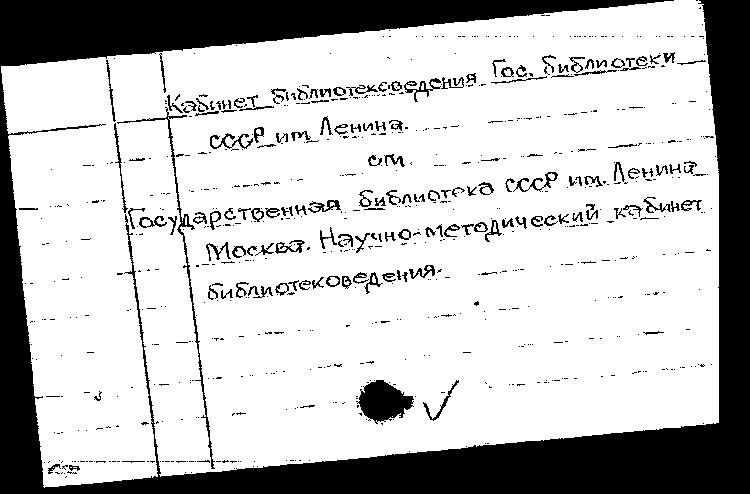 Кабинет библиотековедения Гос. библиотеки
СССР им. Ленина.
см.
Государственная библиотека СССР им. Ленина
Москва. Научно-методический кабинет
библиотековедения.